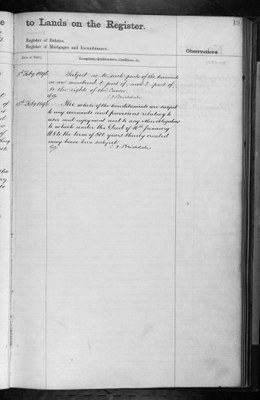 to Lands on the Register.
19
Register of Estates.
Register of Mortgages and Incumbrances.
Observations.
Date of Entry.
Exceptions, Qualifications, Conditions, &c.
Subject as to such parts of the
as are numbered 2 part of, and 3 part of,
to the rights of the Crown.
The whole of the hereditaments are subject
to any covenants and provisions relating to
user and enjoyment and to any other obligations
to which under the Deed of 16th January
the term of 500 years thereby created
may have been subject.